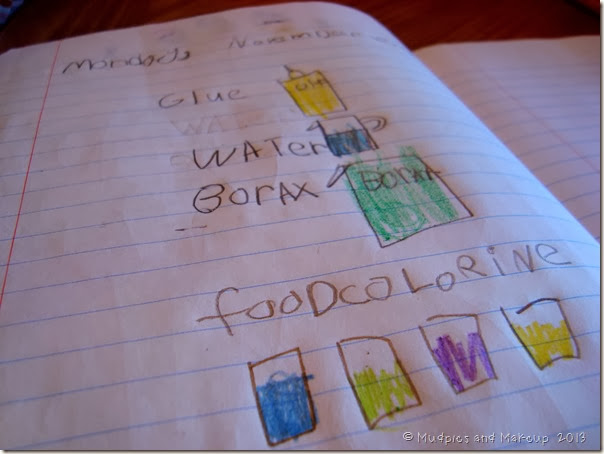 Mondads November
Glue
WATer
Borax BorAx
fOODCOLORiNe
© Mudpies and Makeup 2013